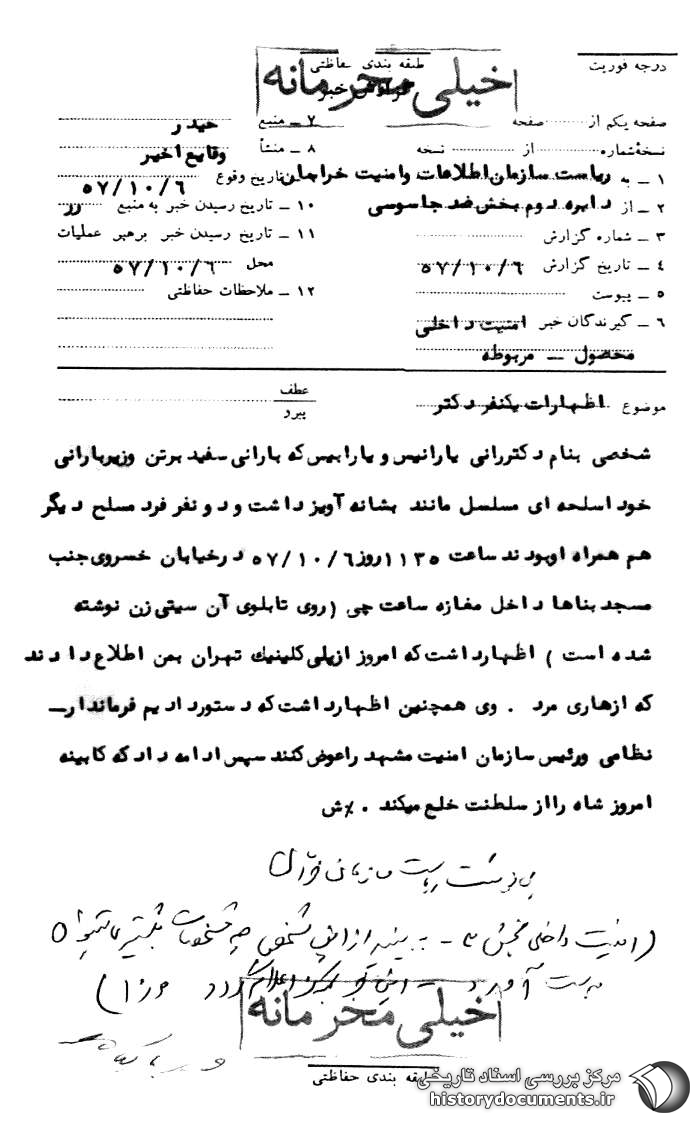 درجه فوریت
طبقه بندی حفاظتی
خیلی محرمانه
گزارش خبر
صفحه یکم از صفحه
نسخه شماره از نسخه
۱ ـ به ریاست سازمان اطلاعات وامنیت خراسان
۲ ـ از دایره دوم بخش ضد جاسوسی
۳ ـ شماره گزارش
۴ ـ تاریخ گزارش ۵۷/۱۰/۶
۵ ـ پیوست
۶ ـ گیرندگان خبر امنیت داخلی
محصول ـ مربوطه
۷ ـ منبع حیدر
۸ ـ منشأ وقایع اخیر
تاریخ وقوع ۵۷/۱۰/۶
۱۰ ـ تاریخ رسیدن خبر به منبع روز
۱۱ ـ تاریخ رسیدن خبر برهبر عملیات
محل ۵۷/۱۰/۶
۱۲ ـ ملاحظات حفاظتی
موضوع اظهارات یکنفر دکتر
عطف
پیرو
شخصی بنام دکتررانی یارانیس و یارابیس که بارانی سفید برتن وزیربارانی
خود اسلحه ای مسلسل مانند بشانه آویز داشت و دو نفر فرد مسلح دیگر
هم همراه اوبودند ساعت ۱۱۳۵ روز ۵۷/۱۰/۶ درخیابان خسروی جنب
مسجد بناها داخل مغازه ساعت چی (روی تابلوی آن سیتی زن نوشته
شده است ) اظهارداشت که امروز ازپلی کلینیك تهران بمن اطلاع دادند
که ازهاری مرد . وی همچنین اظهارداشت که دستور دادیم فرماندارـ
نظامی ورئیس سازمان امنیت مشهد راعوض کنند سپس ادامه داد که کابینه
امروز شاه رااز سلطنت خلع میکند . ٪ش
پی نوشت ریاست سازمان
(امنیت داخلی بخش ۳ ـ ببینید از این شخص چه مشخصات بیشتری
بدست آورد
خیلی محرمانه
طبقه بندی حفاظتی
مرکز بررسی اسناد تاریخی
historydocuments.ir